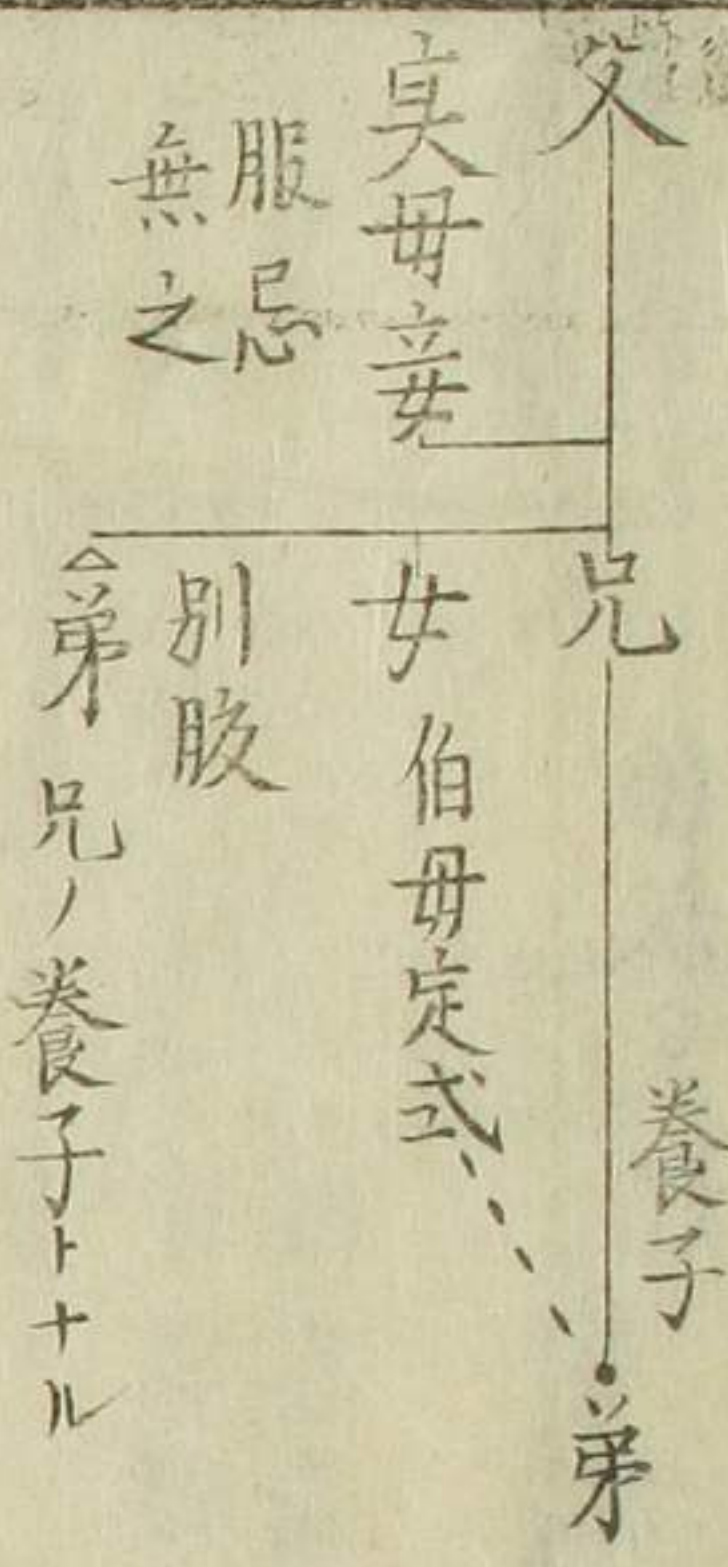 父
真母妾
服忌
無之
兄
養子
弟
女 伯母定式
別腹
弟 兄ノ養子トナル